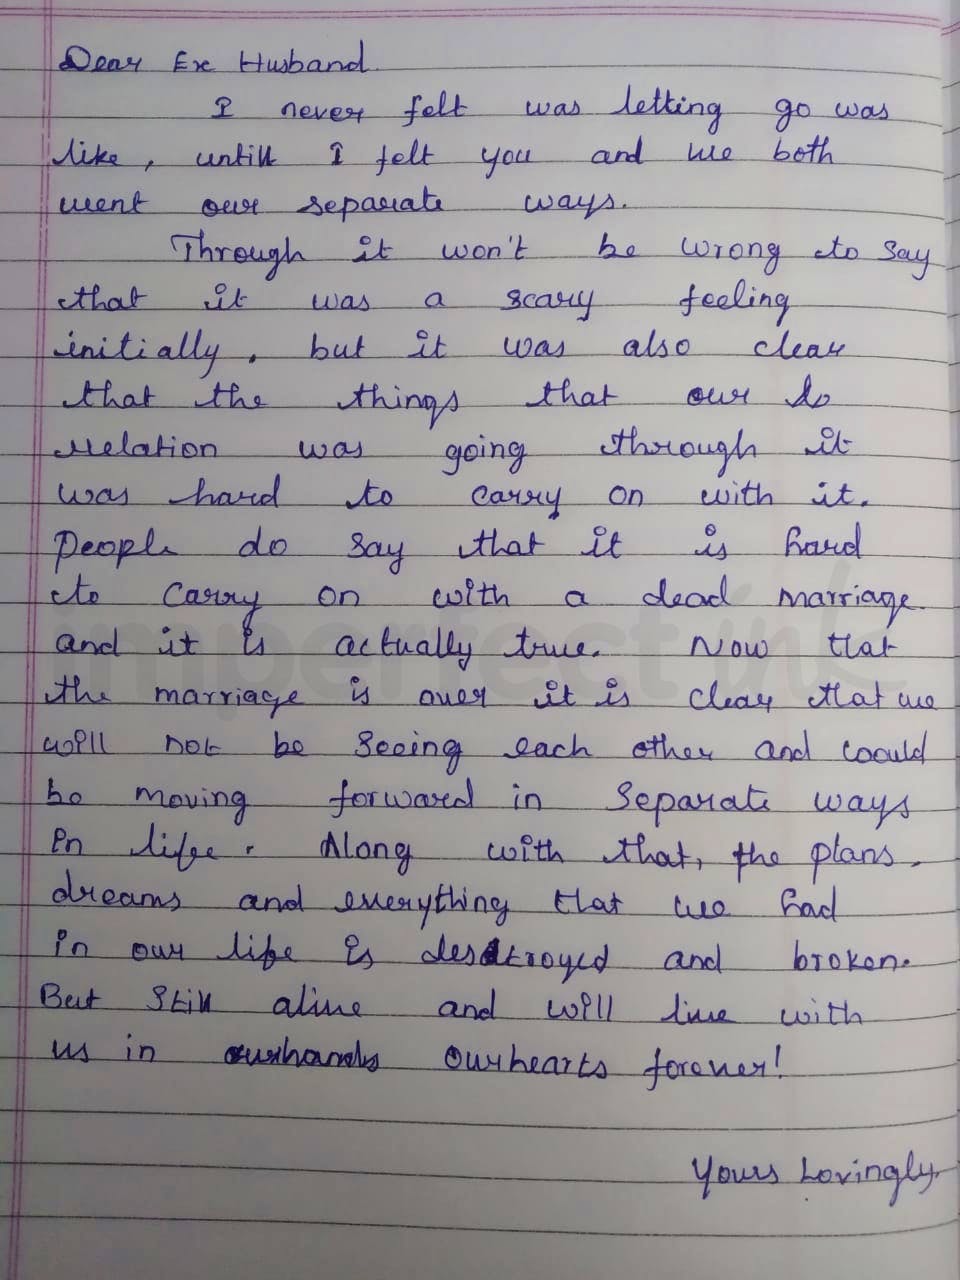 Dear Ex Husband
I never felt was letting go was
like, untill I felt you and we both
went our separate ways.
Through it won't be wrong to say
that it was a scary feeling
initially, but it was also clear
that the things that our
relation was going through it
was hard to carry on with it.
People do say that it is hard
to carry on with a dead marriage.
and it is actually true. Now that
the marriage is over it is clear that we
will not be seeing each other and would
be moving forward in separate ways
in life. Along with that, the plans,
dreams and everything that we had
in our life is destroyed and broken.
But still alive and will live with
us in ourhearts forever!
Yours Lovingly.
imperfect ink